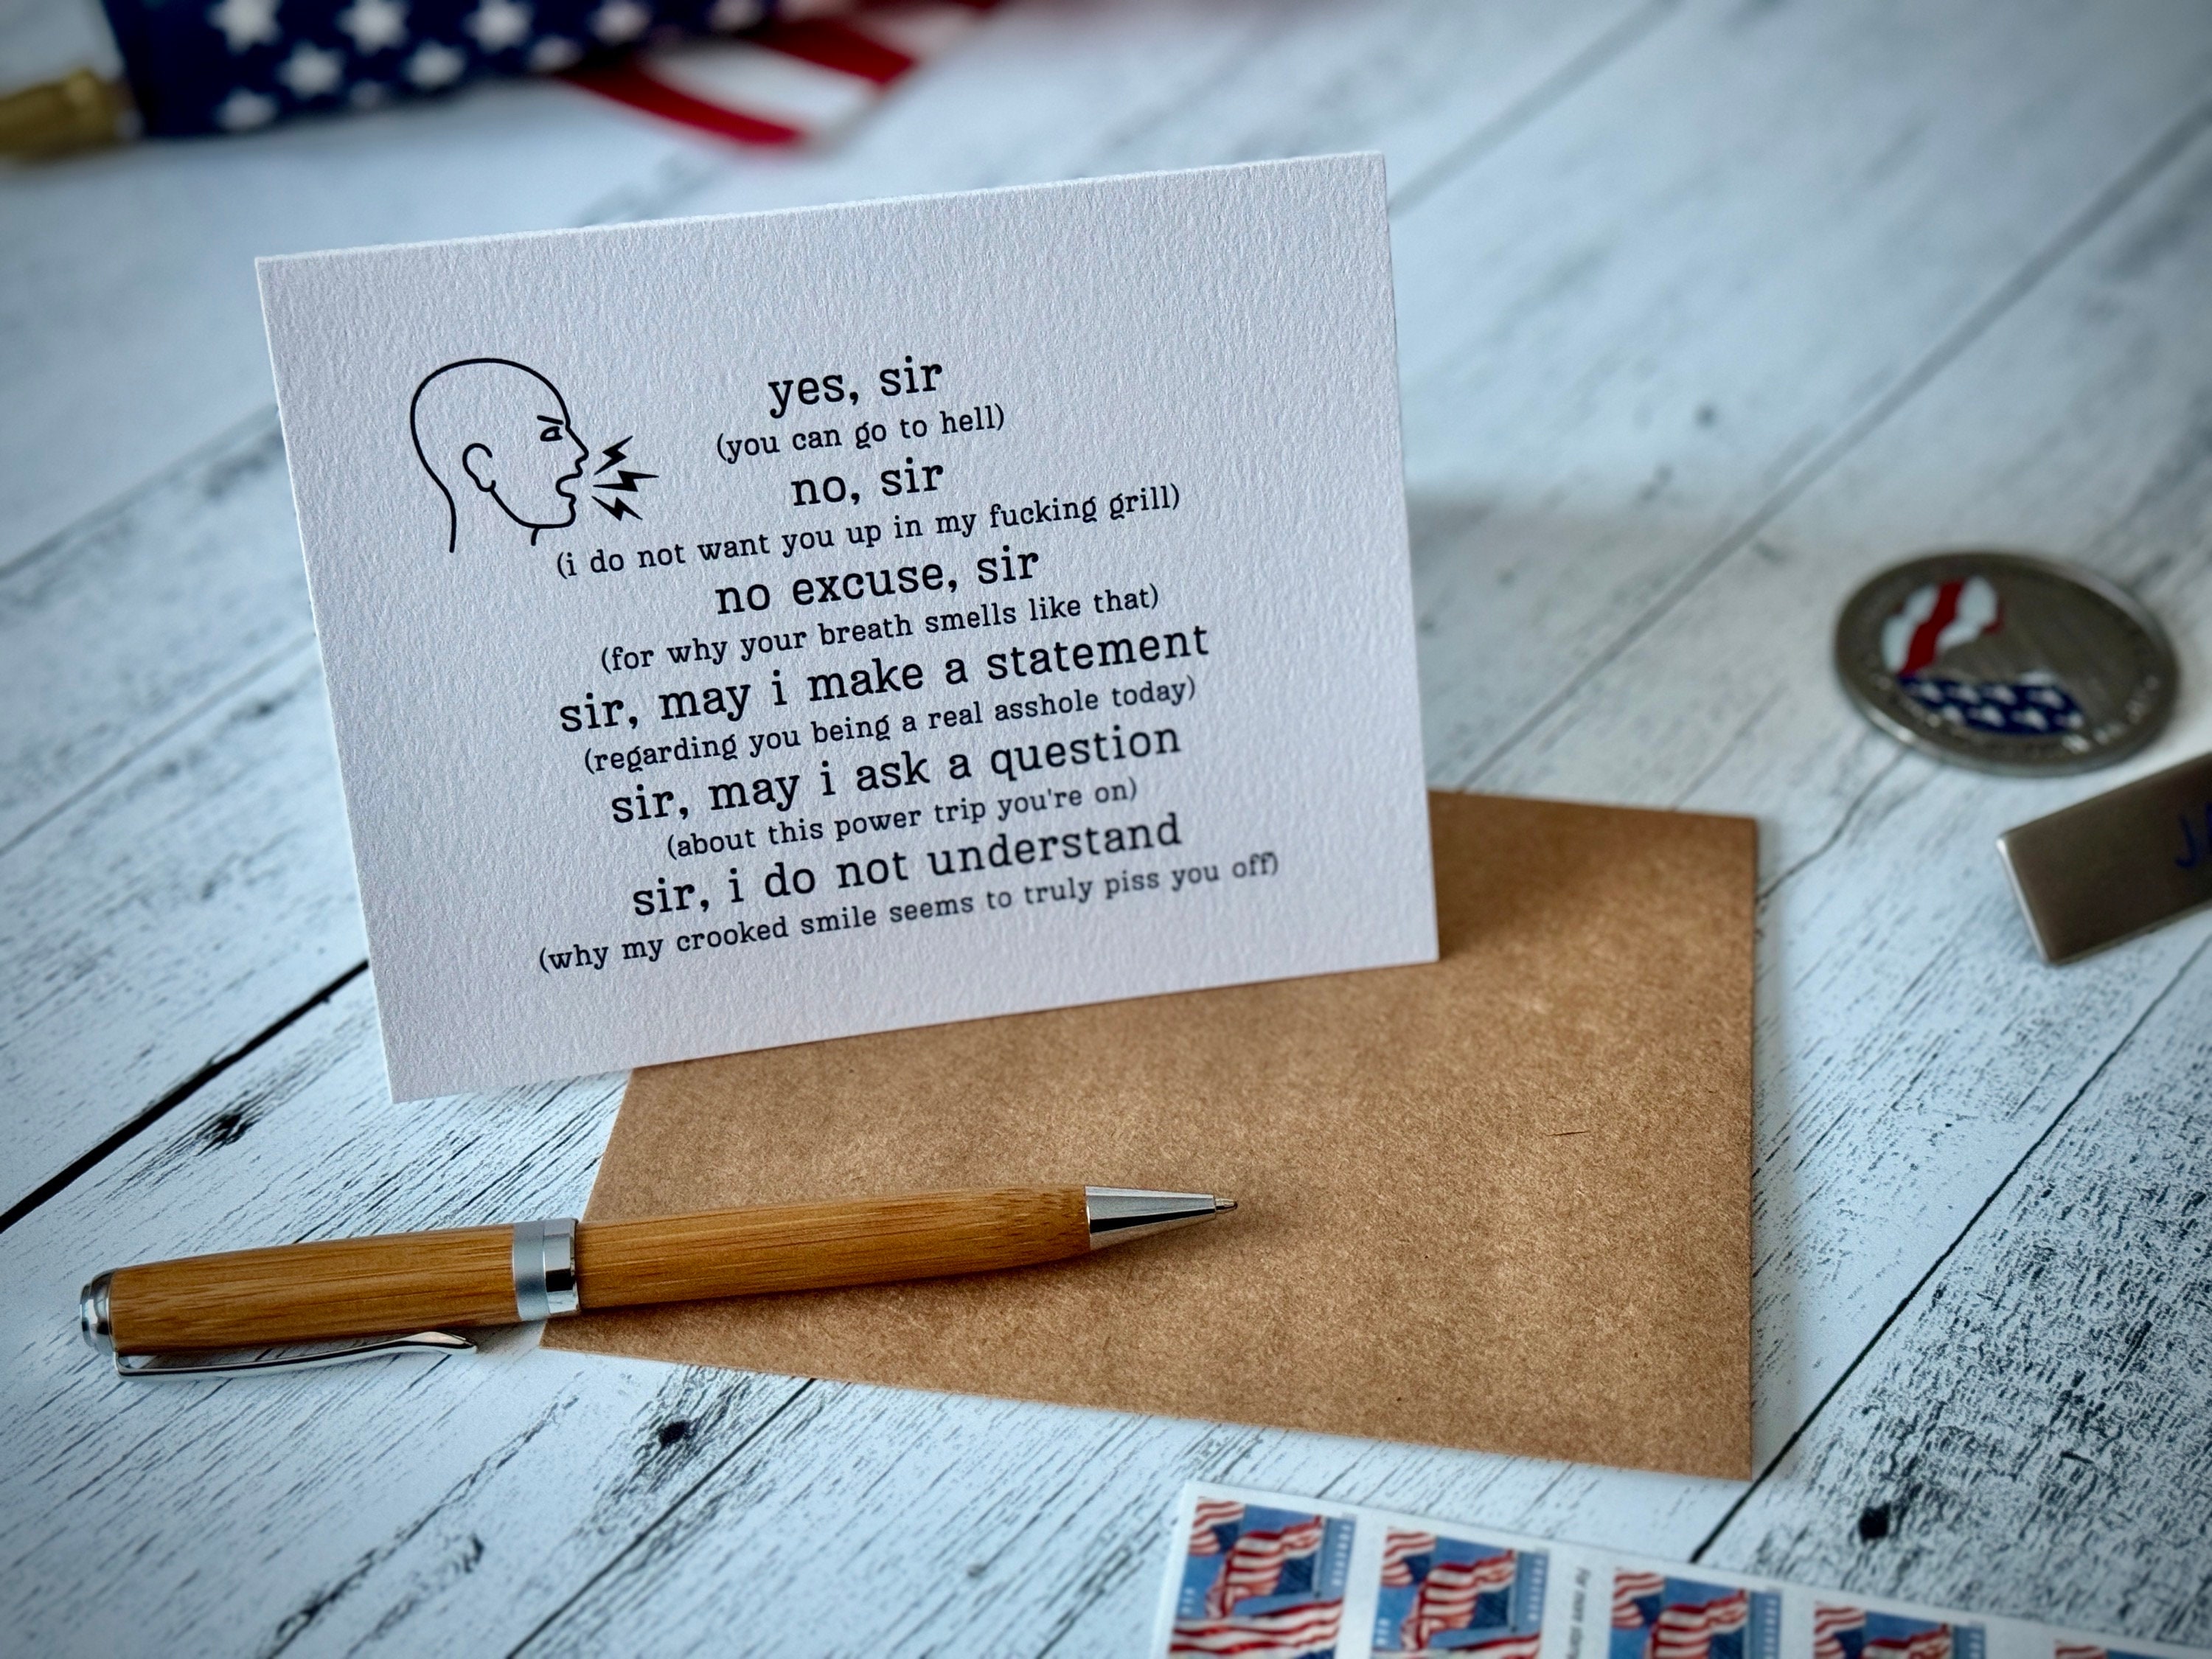 yes, sir
(you can go to hell)
no, sir
(i do not want you up in my fucking grill)
no excuse, sir
(for why your breath smells like that)
sir, may i make a statement
(regarding you being a real asshole today)
sir, may i ask a question
(about this power trip you're on)
sir, i do not understand
(why my crooked smile seems to truly piss you off)